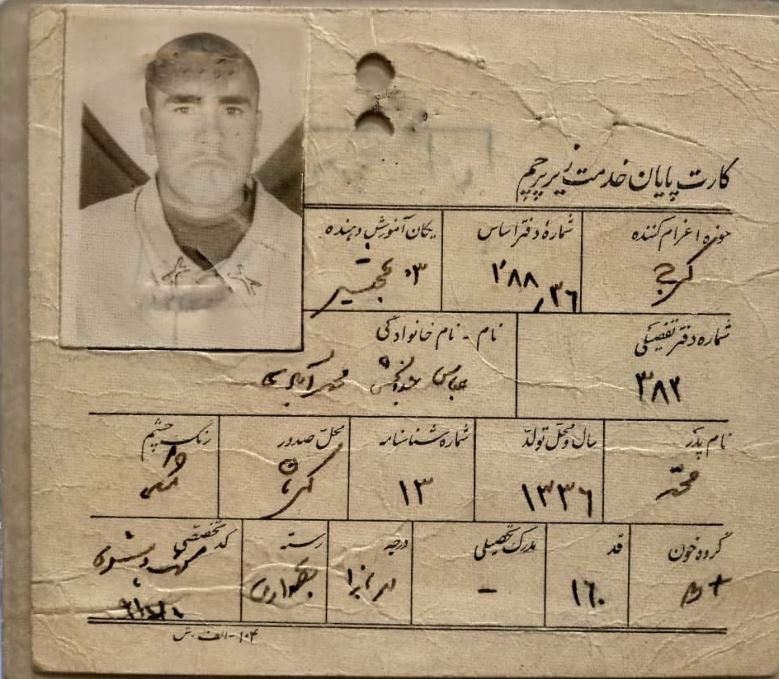 کارت پایان خدمت زیر پرچم
حوزه اعزام کننده
شمارهٔ دفتر اساس
یکان آموزش دهنده
کرج
۱۸۸
۳۶
۰۳ عجبشیر
شماره دفتر تفصیلی
نام - نام خانوادگی
۳۸۲
عباس
نام پدر
سال و محل تولد
شماره شناسنامه
محل صدور
رنگ چشم
محمد
۱۳۳۶
۱۳
کرج
گروه خون
قد
مدرک تحصیلی
درجه
رسته
کد تخصصی
B+
۱۶۰
-
سرباز
۱۰۴-الف.ش